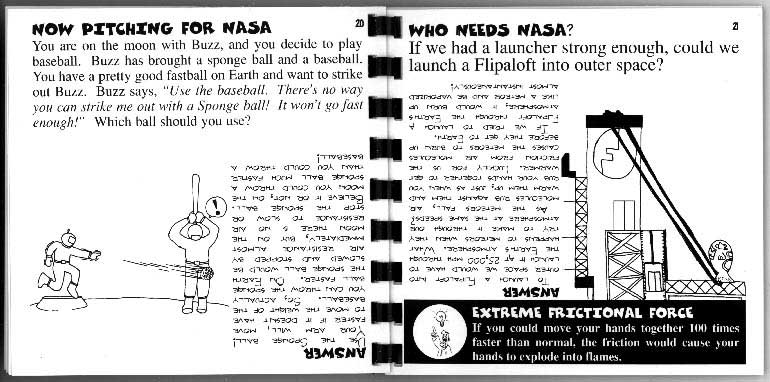 NOW PITCHING FOR NASA
20
You are on the moon with Buzz, and you decide to play
baseball. Buzz has brought a sponge ball and a baseball.
You have a pretty good fastball on Earth and want to strike
out Buzz. Buzz says, "Use the baseball. There's no way
you can strike me out with a Sponge ball! It won't go fast
enough!" Which ball should you use?
ANSWER
USE THE SPONGE BALL!
YOUR ARM WILL, MOVE
FASTER IF IT DOESN'T HAVE
TO MOVE THE WEIGHT OF THE
BASEBALL. SO, ACTUALLY
YOU CAN THROW THE SPONGE
BALL FASTER. ON EARTH
THE SPONGE BALL WOULD BE
SLOWED AND STOPPED BY
AIR RESISTANCE ALMOST
IMMEDIATELY, BUT ON THE
MOON THERE IS NO AIR
RESISTANCE TO SLOW OR
STOP THE SPONGE BALL.
BELIEVE IT OR NOT, ON THE
MOON YOU COULD THROW A
SPONGE BALL MUCH FASTER
THAN YOU COULD THROW A
BASEBALL!
!
WHO NEEDS NASA?
21
If we had a launcher strong enough, could we
launch a Flipaloft into outer space?
ANSWER
TO LAUNCH A FLIPALOFT INTO
OUTER SPACE WE WOULD HAVE TO
LAUNCH IT AT 25,000 MPH THROUGH
THE EARTH'S ATMOSPHERE. WHAT
HAPPENS TO METEORS WHEN THEY
TRY TO MAKE IT THROUGH OUR
ATMOSPHERE AT THE SAME SPEEDS?
AS THE METEORS FALL, AIR
MOLECULES RUB AGAINST THEM AND
WARM THEM UP, JUST AS WHEN YOU
RUB YOUR HANDS TOGETHER TO GET
WARMER. LUCKILY FOR US THE
FRICTION FROM AIR MOLECULES
CAUSES THE METEORS TO BURN UP
BEFORE THEY GET TO EARTH.
IF WE TRIED TO LAUNCH A
FLIPALOFT THROUGH THE EARTH'S
ATMOSPHERE, IT WOULD BURN UP
LIKE A METEOR AND BE VAPORIZED
ALMOST INSTANTANEOUSLY!
F
EXTREME FRICTIONAL FORCE
If you could move your hands together 100 times
faster than normal, the friction would cause your
hands to explode into flames.